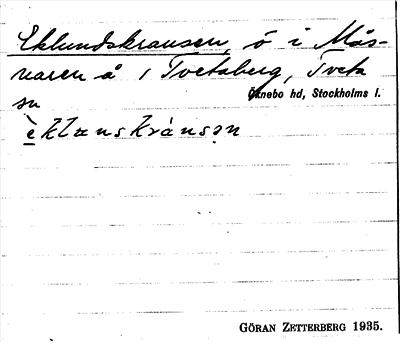 Eklundskransen, ö i Mås-
naren å 1 Tvetaberg, Tveta
sn Öknebo hd, Stockholms l.
èklunskránsən
GÖRAN ZETTERBERG 1935.